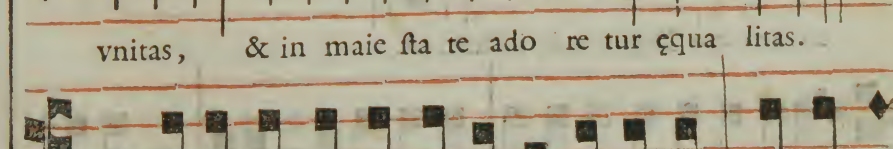 vnitas, & in maie ſta te ado re tur ęqua litas.